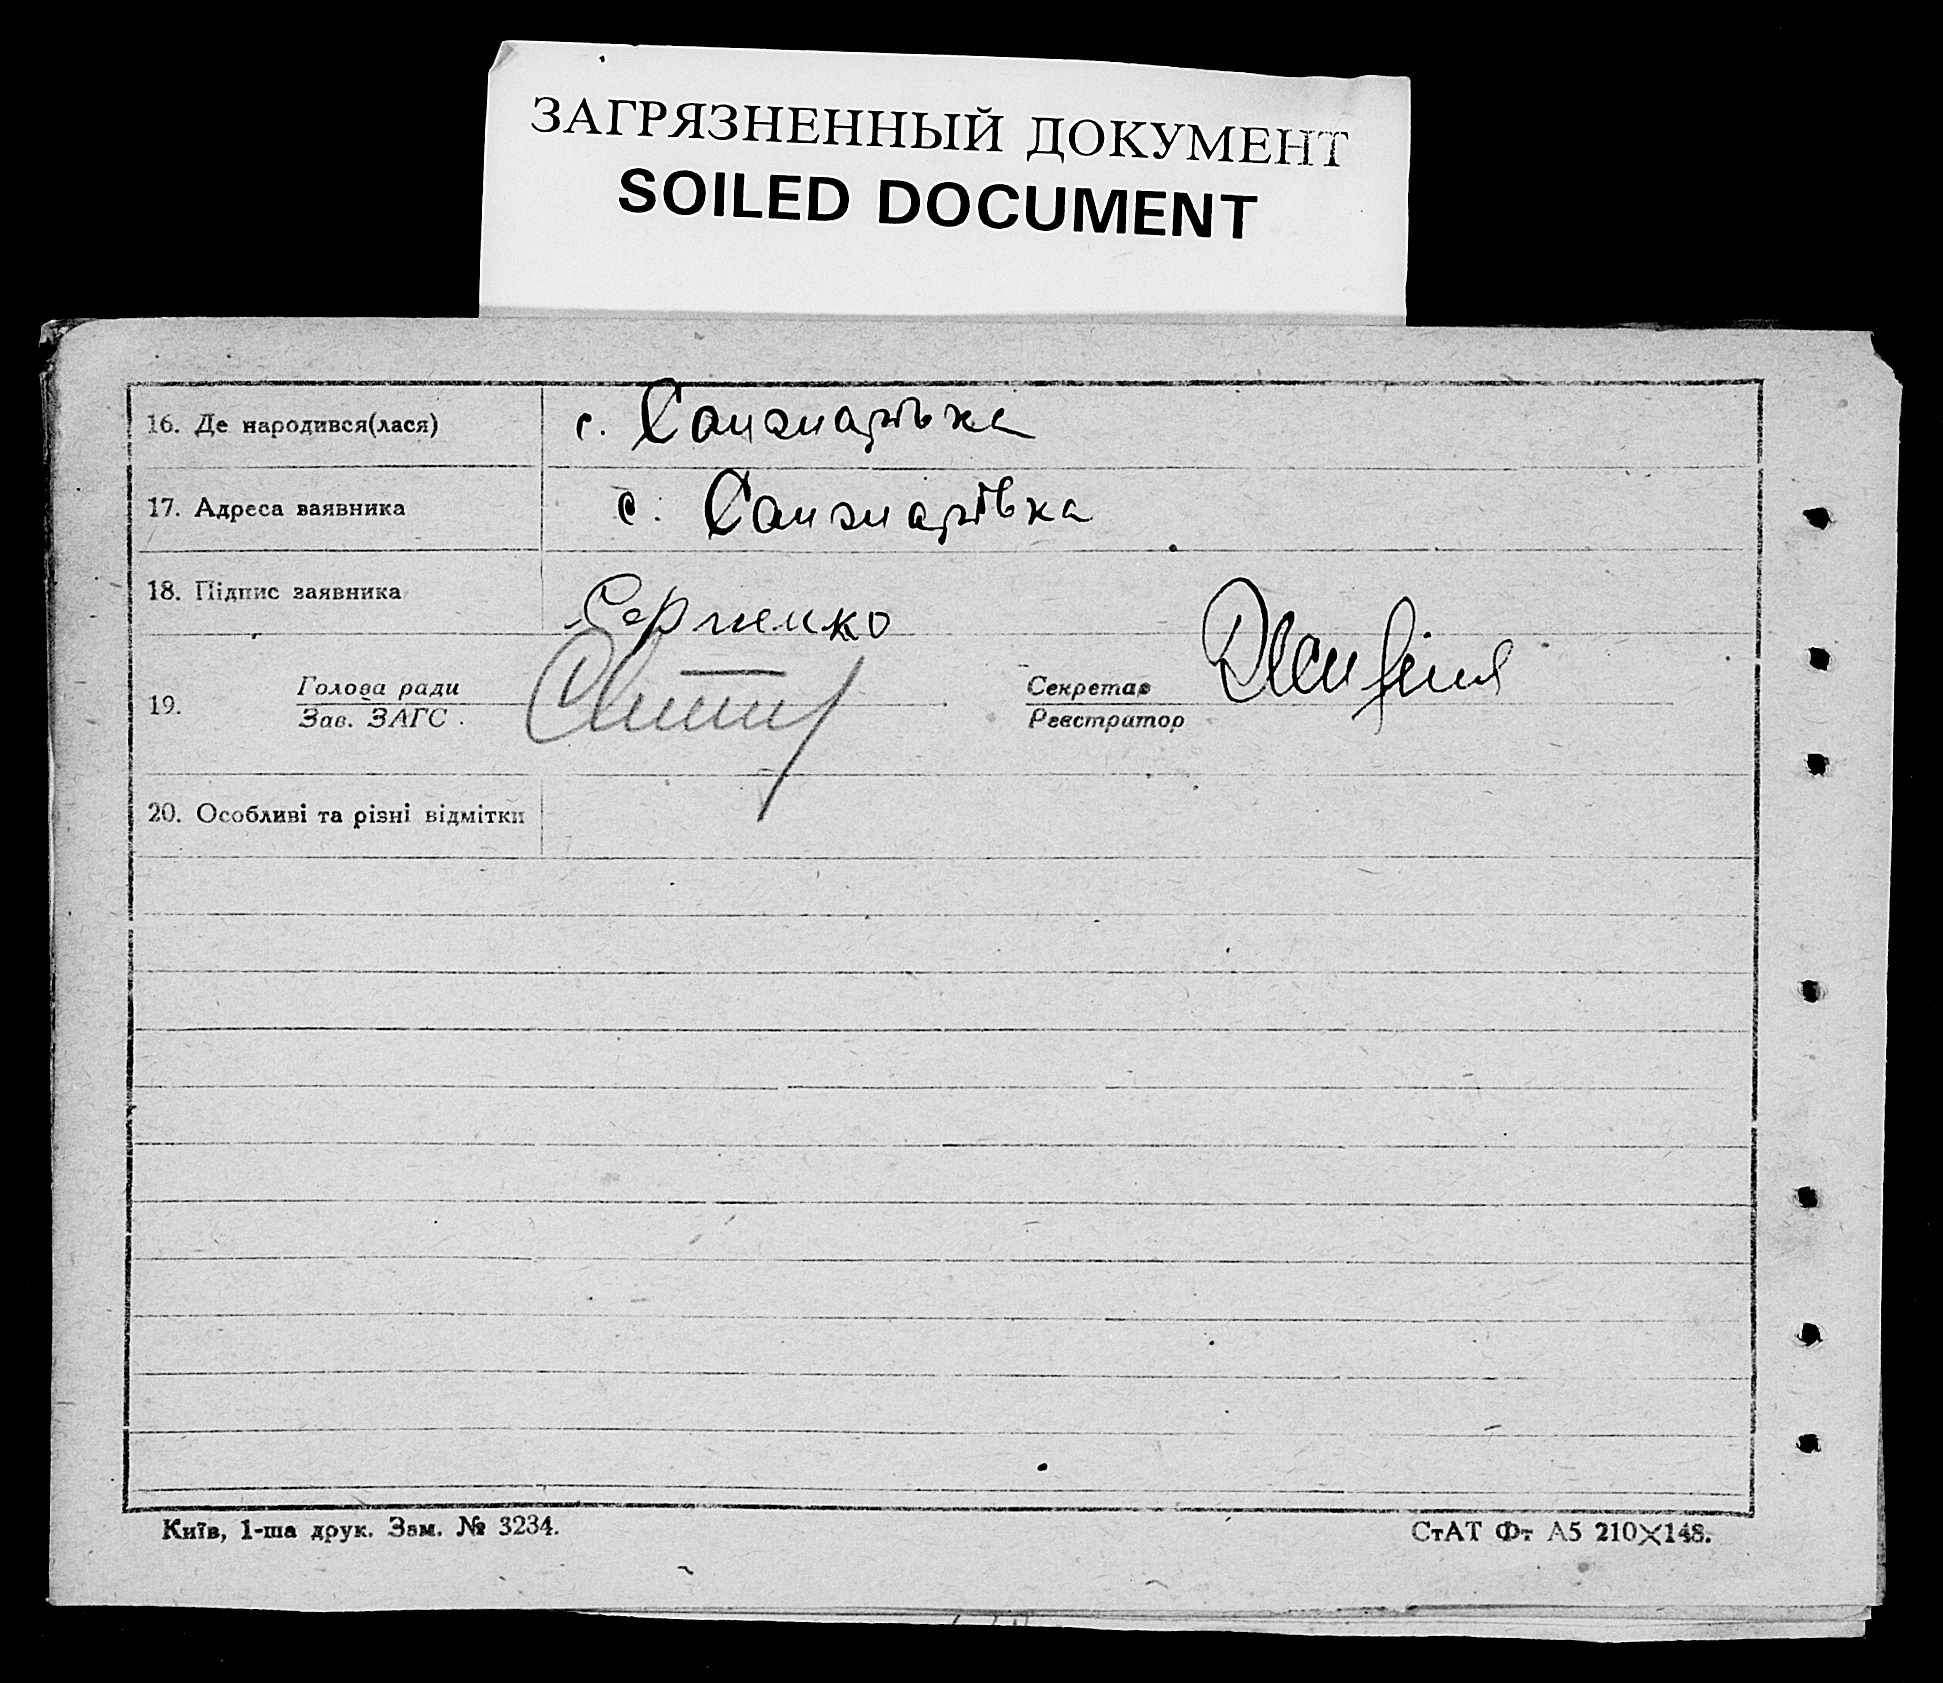 ЗАГРЯЗНЕННЫЙ ДОКУМЕНТ
SOILED DOCUMENT
16. Де народився(лася) с. Санжарівка
17. Адреса заявника с. Санжарівка
18. Підпис заявника Сергиенко
19. Голова ради
Зав. ЗАГС
Секретар
Реєстратор
20. Особливі та різні відмітки
Київ, 1-ша друк. Зам. № 3234.
СтАТ Фт А5 210×148.